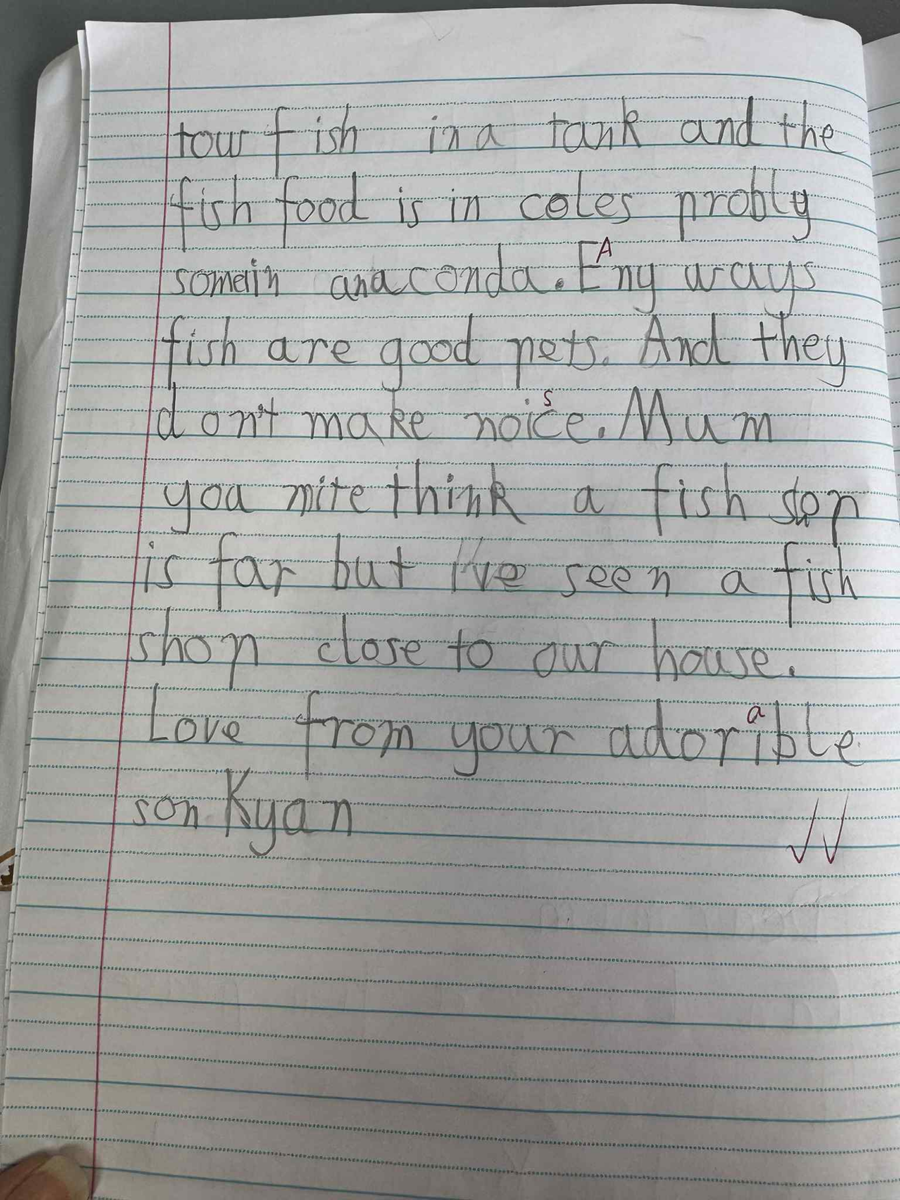 tow fish in a tank and the
fish food is in coles probly
somein anaconda. Eny ways
A
fish are good pets. And they
don't make noice. Mum
s
you mite think a fish sop
is far but I've seen a fish
shop close to our house.
Love from your adorible
a
son Kyan